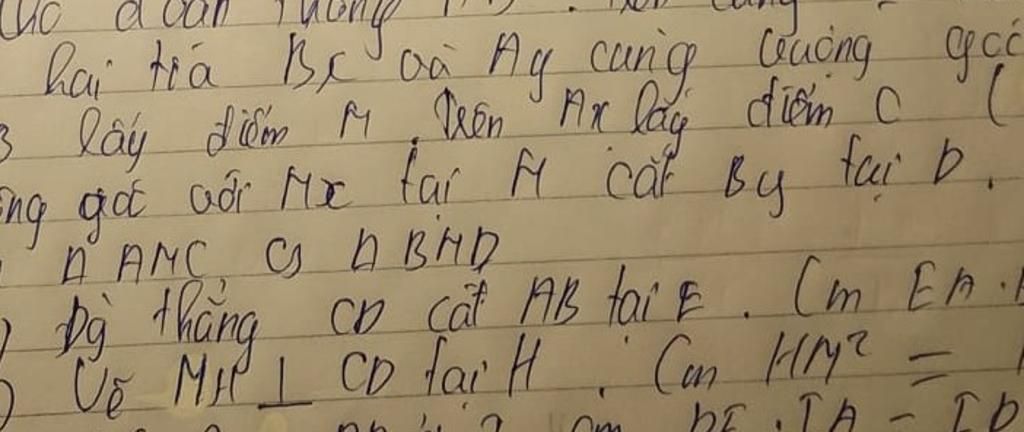 đoạn
hai tia Bx và Ay cùng vuông góc
lấy điểm M. Trên Ax lấy điểm C (
góc với Mx tại M cắt By tại D.
Δ AMC ∽ Δ BMD
) Đg thẳng CD cắt AB tại E. Cm EA.
) Vẽ MH ⊥ CD tại H. Cm HM² =
Cm DE. IA = ID